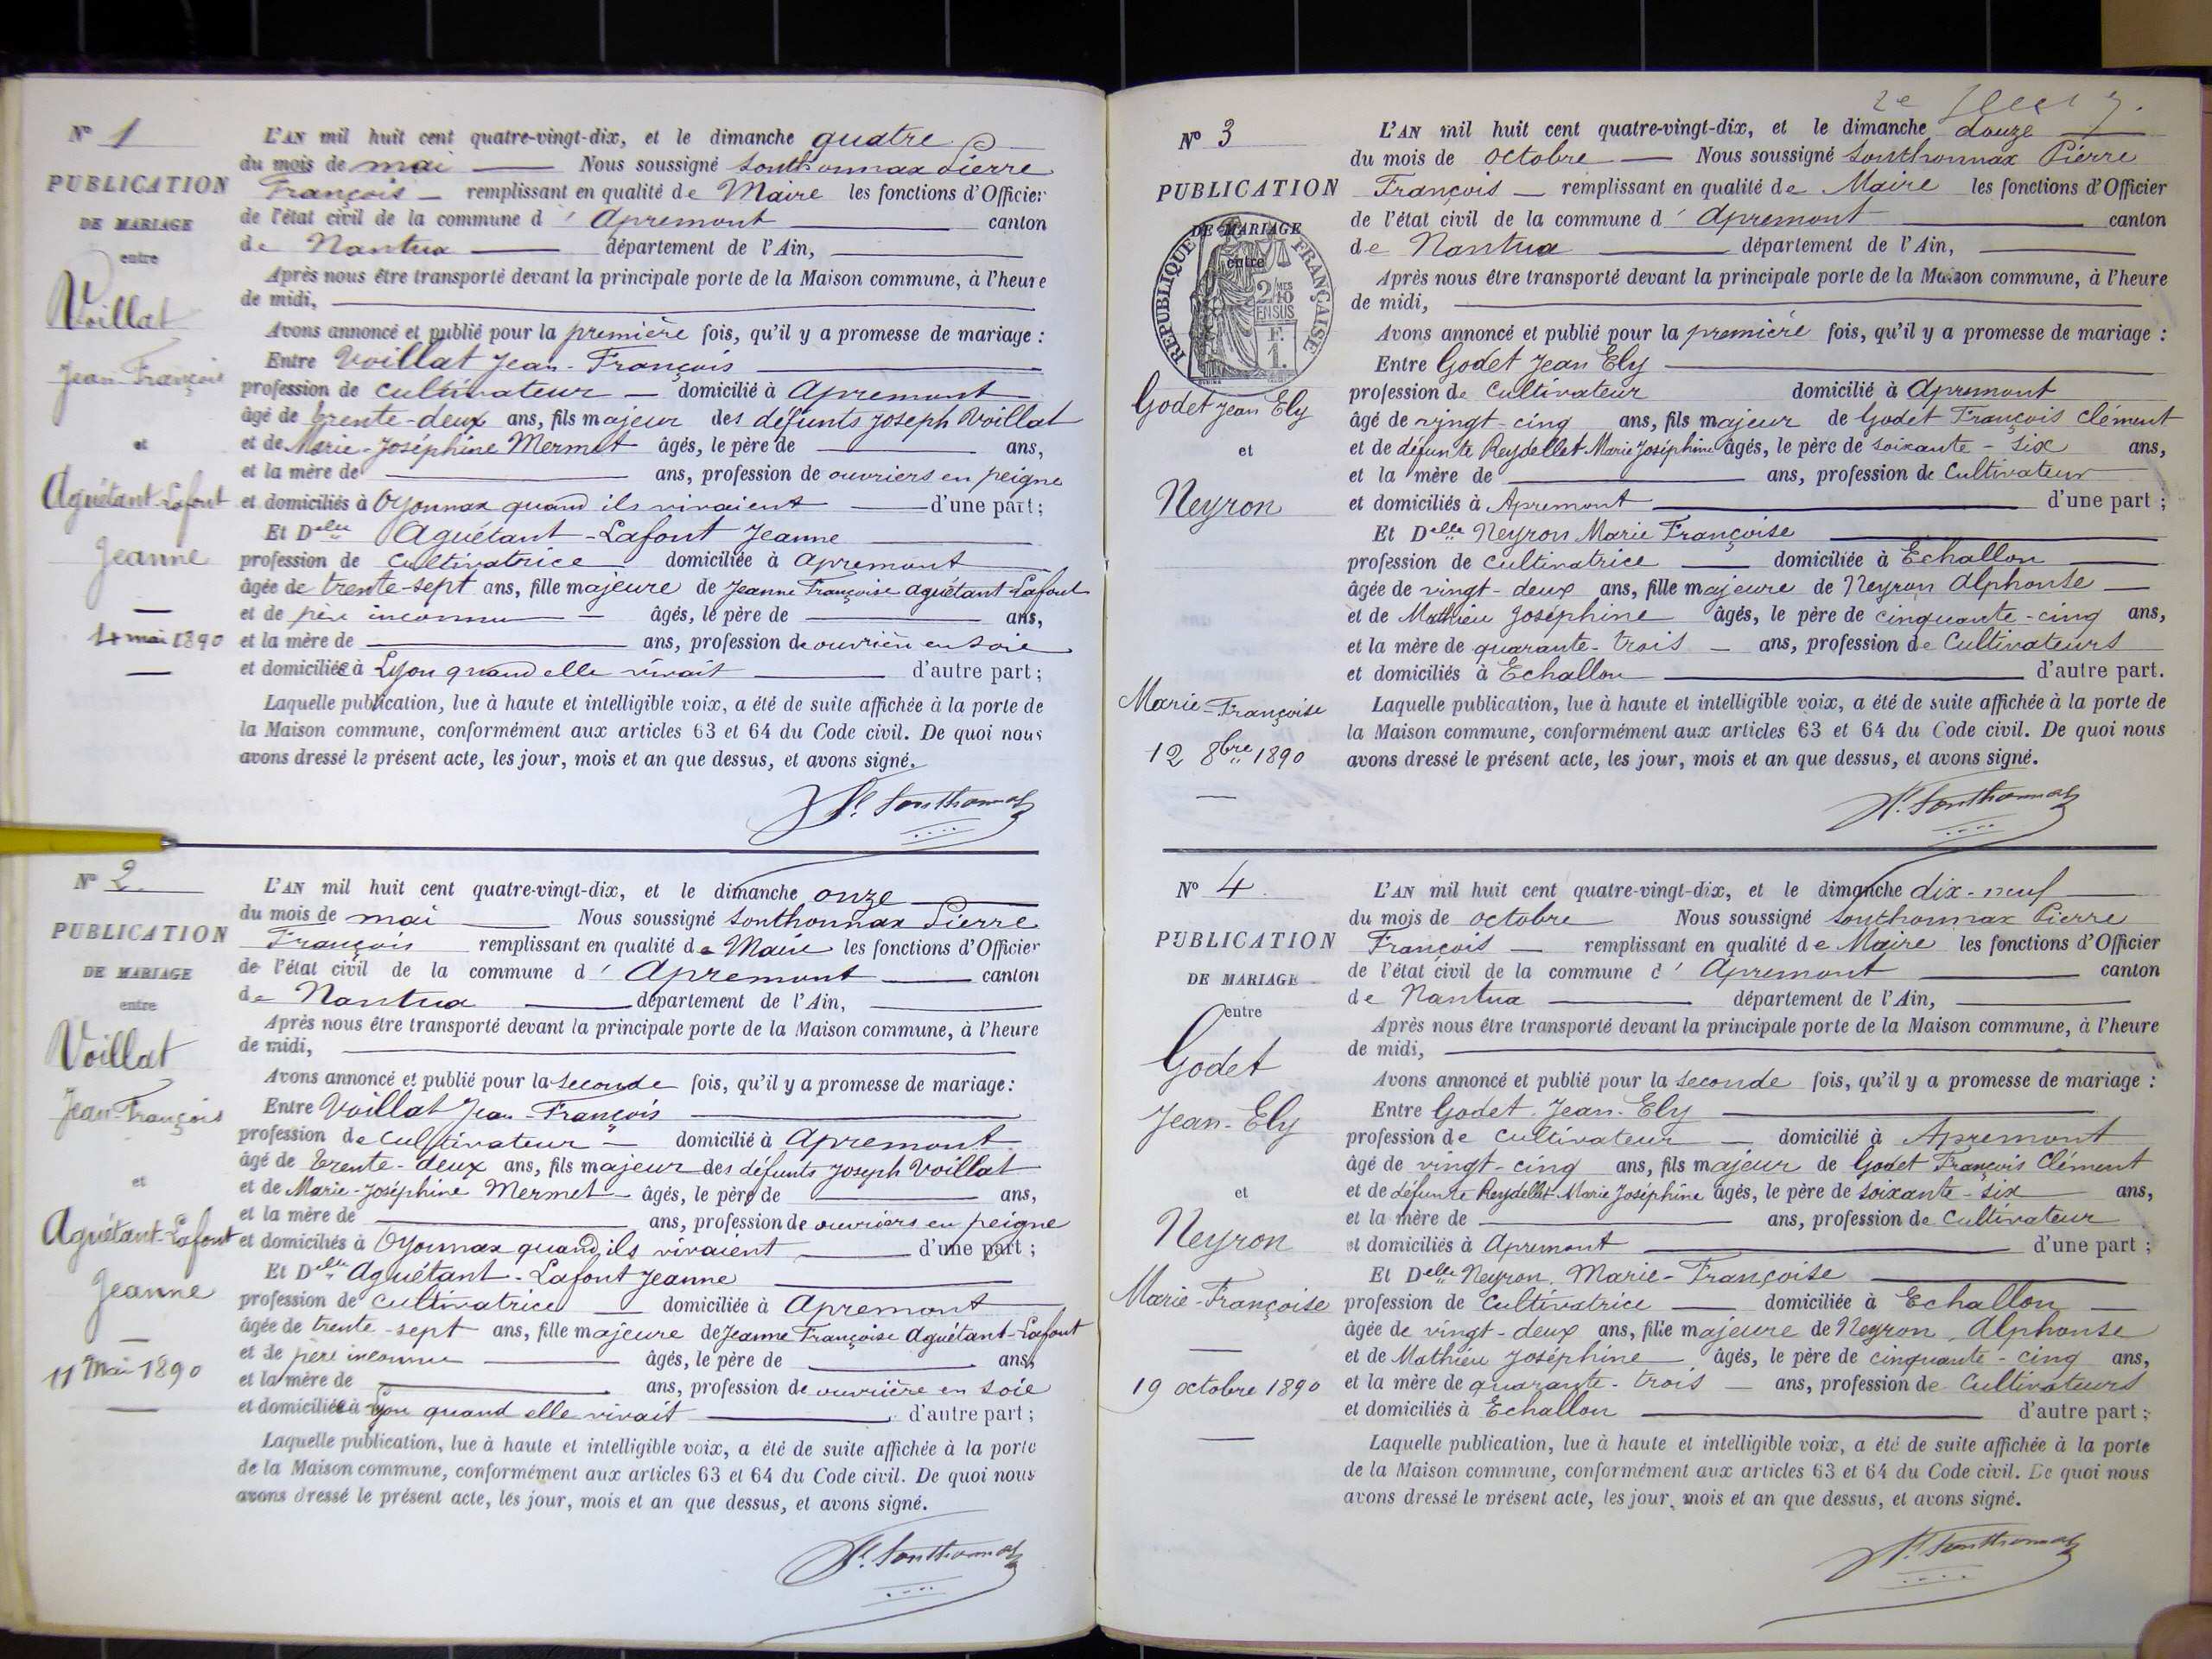 N° 1
PUBLICATION
DE MARIAGE
entre
Voillat
Jean-François
et
Aguétant-Lafont
Jeanne
4 mai 1890
L'AN mil huit cent quatre-vingt-dix, et le dimanche quatre
du mois de mai Nous soussigné Southonnax Pierre
François remplissant en qualité de Maire les fonctions d'Officier
de l'état civil de la commune d' Apremont canton
de Nantua département de l'Ain,
Après nous être transporté devant la principale porte de la Maison commune, à l'heure
de midi,
Avons annoncé et publié pour la première fois, qu'il y a promesse de mariage :
Entre Voillat Jean-François
profession de cultivateur domicilié à Apremont
âgé de trente-deux ans, fils majeur des défunts Joseph Voillat
et de Marie-Joséphine Mermet âgés, le père de ans,
et la mère de ans, profession de ouvriers en peigne
et domiciliés à Oyonnax quand ils vivaient d'une part ;
Et Delle Aguétant-Lafont Jeanne
profession de cultivatrice domiciliée à Apremont
âgée de trente-sept ans, fille majeure de Jeanne Françoise Aguétant-Lafont
et de père inconnu âgés, le père de ans,
et la mère de ans, profession de ouvrière en soie
et domiciliée à Lyon quand elle vivait d'autre part ;
Laquelle publication, lue à haute et intelligible voix, a été de suite affichée à la porte de
la Maison commune, conformément aux articles 63 et 64 du Code civil. De quoi nous
avons dressé le présent acte, les jour, mois et an que dessus, et avons signé.
P. Southonnax
N° 2
PUBLICATION
DE MARIAGE
entre
Voillat
Jean-François
et
Aguétant-Lafont
Jeanne
11 Mai 1890
L'AN mil huit cent quatre-vingt-dix, et le dimanche onze
du mois de mai Nous soussigné Southonnax Pierre
François remplissant en qualité de Maire les fonctions d'Officier
de l'état civil de la commune d' Apremont canton
de Nantua département de l'Ain,
Après nous être transporté devant la principale porte de la Maison commune, à l'heure
de midi,
Avons annoncé et publié pour la seconde fois, qu'il y a promesse de mariage :
Entre Voillat Jean-François
profession de cultivateur domicilié à Apremont
âgé de trente-deux ans, fils majeur des défunts Joseph Voillat
et de Marie-Joséphine Mermet âgés, le père de ans,
et la mère de ans, profession de ouvriers en peigne
et domiciliés à Oyonnax quand ils vivaient d'une part ;
Et Delle Aguétant-Lafont Jeanne
profession de cultivatrice domiciliée à Apremont
âgée de trente-sept ans, fille majeure de Jeanne Françoise Aguétant-Lafont
et de père inconnu âgés, le père de ans,
et la mère de ans, profession de ouvrière en soie
et domiciliée à Lyon quand elle vivait d'autre part ;
Laquelle publication, lue à haute et intelligible voix, a été de suite affichée à la porte
de la Maison commune, conformément aux articles 63 et 64 du Code civil. De quoi nous
avons dressé le présent acte, les jour, mois et an que dessus, et avons signé.
P. Southonnax
2e
N° 3
PUBLICATION
DE MARIAGE
entre
RÉPUBLIQUE FRANÇAISE
2/10MES
EN SUS
F.
1.
Godet Jean Ely
et
Neyron
Marie-Françoise
12 8bre 1890
L'AN mil huit cent quatre-vingt-dix, et le dimanche douze
du mois de octobre Nous soussigné Southonnax Pierre
François remplissant en qualité de Maire les fonctions d'Officier
de l'état civil de la commune d' Apremont canton
de Nantua département de l'Ain,
Après nous être transporté devant la principale porte de la Maison commune, à l'heure
de midi,
Avons annoncé et publié pour la première fois, qu'il y a promesse de mariage :
Entre Godet Jean Ely
profession de Cultivateur domicilié à Apremont
âgé de vingt-cinq ans, fils majeur de Godet François Clément
et de défunte Reydellet Marie Joséphine âgés, le père de soixante-six ans,
et la mère de ans, profession de Cultivateur
et domiciliés à Apremont d'une part ;
Et Delle Neyron Marie Françoise
profession de cultivatrice domiciliée à Echallon
âgée de vingt-deux ans, fille majeure de Neyron Alphonse
et de Mathieu Joséphine âgés, le père de cinquante-cinq ans,
et la mère de quarante-trois ans, profession de Cultivateurs
et domiciliés à Echallon d'autre part.
Laquelle publication, lue à haute et intelligible voix, a été de suite affichée à la porte de
la Maison commune, conformément aux articles 63 et 64 du Code civil. De quoi nous
avons dressé le présent acte, les jour, mois et an que dessus, et avons signé.
P. Southonnax
N° 4
PUBLICATION
DE MARIAGE
entre
Godet
Jean-Ely
et
Neyron
Marie-Françoise
19 octobre 1890
L'AN mil huit cent quatre-vingt-dix, et le dimanche dix-neuf
du mois de octobre Nous soussigné Southonnax Pierre
François remplissant en qualité de Maire les fonctions d'Officier
de l'état civil de la commune d' Apremont canton
de Nantua département de l'Ain,
Après nous être transporté devant la principale porte de la Maison commune, à l'heure
de midi,
Avons annoncé et publié pour la seconde fois, qu'il y a promesse de mariage :
Entre Godet Jean-Ely
profession de cultivateur domicilié à Apremont
âgé de vingt-cinq ans, fils majeur de Godet François Clément
et de défunte Reydellet Marie Joséphine âgés, le père de soixante-six ans,
et la mère de ans, profession de Cultivateur
et domiciliés à Apremont d'une part ;
Et Delle Neyron Marie-Françoise
profession de Cultivatrice domiciliée à Echallon
âgée de vingt-deux ans, fille majeure de Neyron Alphonse
et de Mathieu Joséphine âgés, le père de cinquante-cinq ans,
et la mère de quarante-trois ans, profession de Cultivateurs
et domiciliés à Echallon d'autre part ;
Laquelle publication, lue à haute et intelligible voix, a été de suite affichée à la porte
de la Maison commune, conformément aux articles 63 et 64 du Code civil. De quoi nous
avons dressé le présent acte, les jour, mois et an que dessus, et avons signé.
P. Southonnax